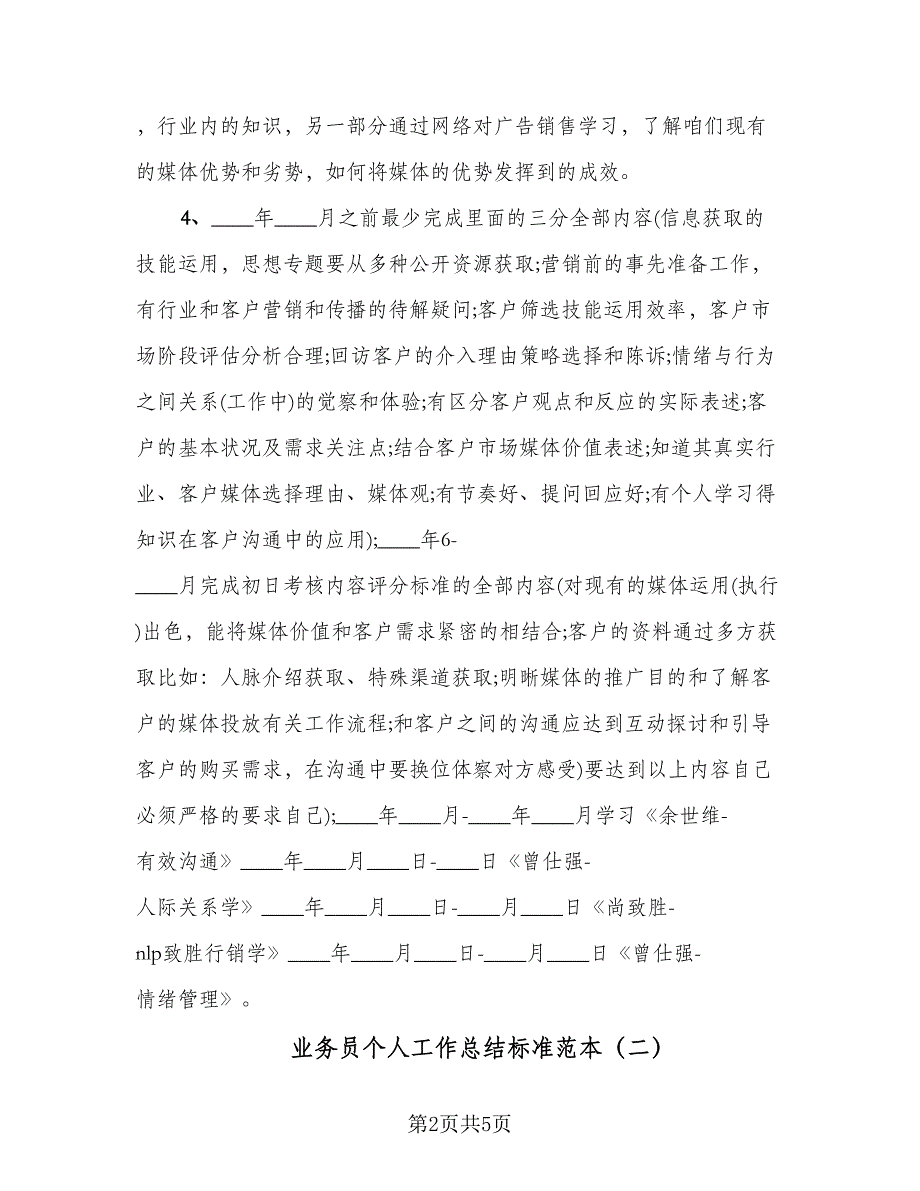 ，行业内的知识，另一部分通过网络对广告销售学习，了解咱们现有
的媒体优势和劣势，如何将媒体的优势发挥到的成效。
4、____年____月之前最少完成里面的三分全部内容(信息获取的
技能运用，思想专题要从多种公开资源获取;营销前的事先准备工作，
有行业和客户营销和传播的待解疑问;客户筛选技能运用效率，客户市
场阶段评估分析合理;回访客户的介入理由策略选择和陈诉;情绪与行为
之间关系(工作中)的觉察和体验;有区分客户观点和反应的实际表述;客
户的基本状况及需求关注点;结合客户市场媒体价值表述;知道其真实行
业、客户媒体选择理由、媒体观;有节奏好、提问回应好;有个人学习得
知识在客户沟通中的应用);____年6-
____月完成初日考核内容评分标准的全部内容(对现有的媒体运用(执行
)出色，能将媒体价值和客户需求紧密的相结合;客户的资料通过多方获
取比如：人脉介绍获取、特殊渠道获取;明晰媒体的推广目的和了解客
户的媒体投放有关工作流程;和客户之间的沟通应达到互动探讨和引导
客户的购买需求，在沟通中要换位体察对方感受)要达到以上内容自己
必须严格的要求自己);____年____月-____年____月学习《余世维-
有效沟通》____年____月____日-____日《曾仕强-
人际关系学》____年____月____日-____月____日《尚致胜-
nlp致胜行销学》____年____月____日-____月____日《曾仕强-
情绪管理》。
业务员个人工作总结标准范本（二）
第2页共5页